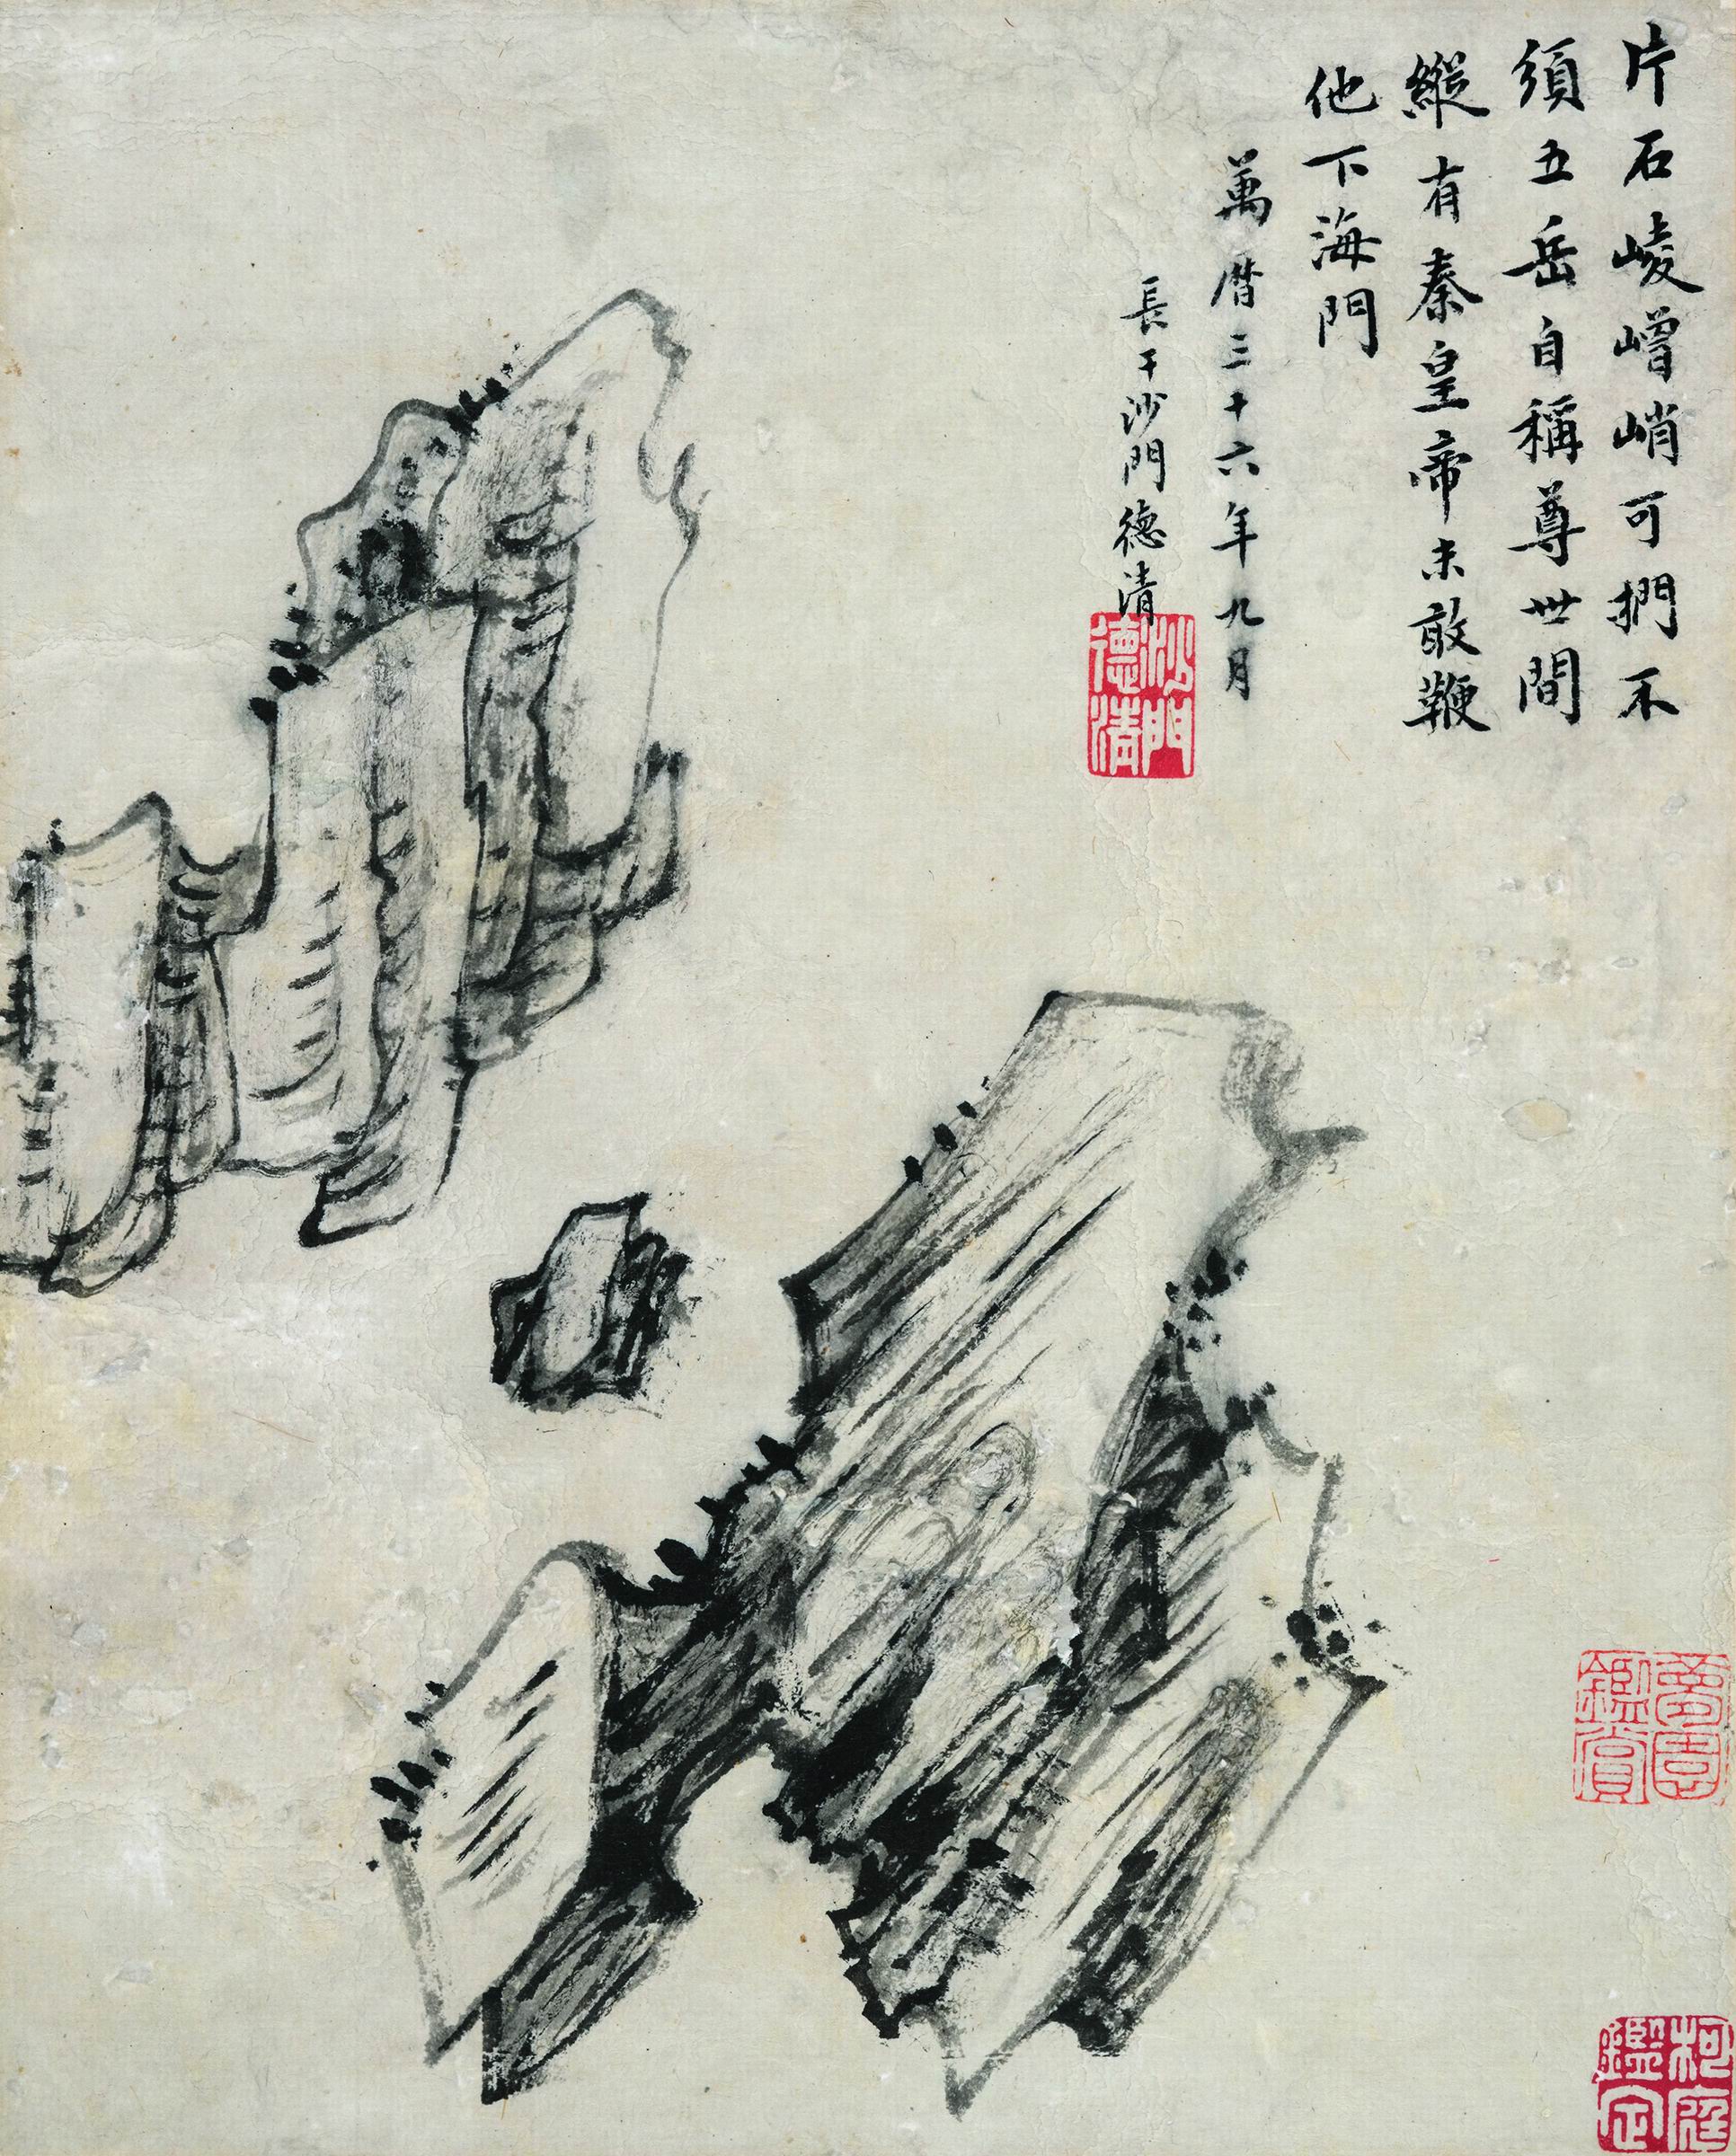 片石崚嶒峭可捫不
須五岳自稱尊世間
縱有秦皇帝未敢鞭
他下海門
萬曆三十六年九月
長干沙門德清
沙門德清
夢園鑑賞
柯庭鑑定